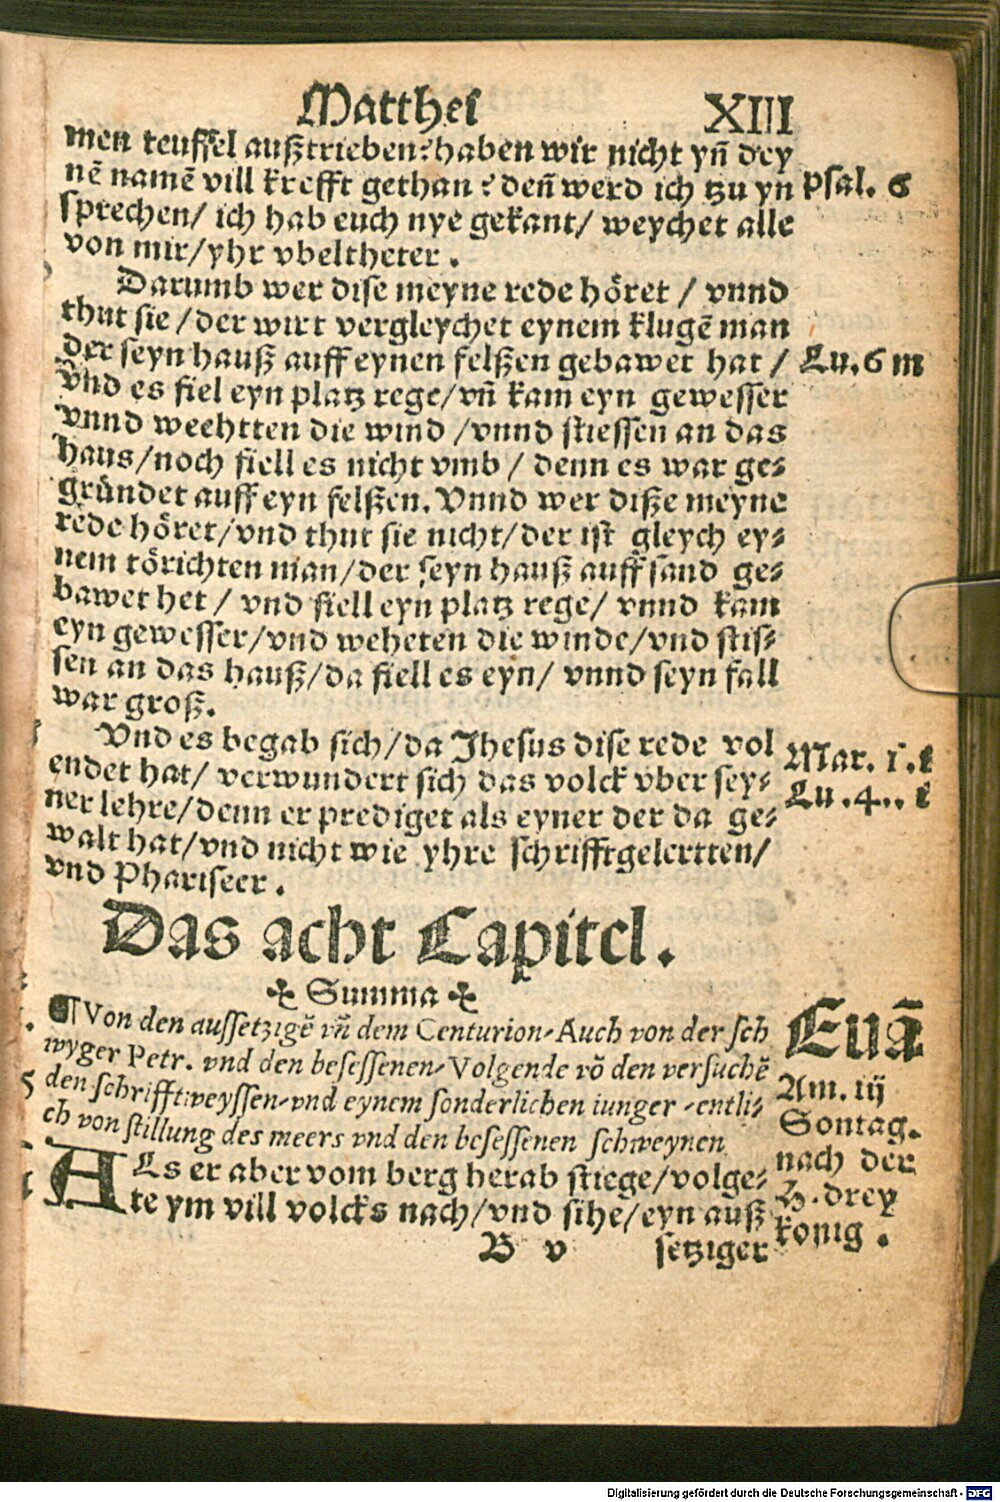 Matthei XIII
men teuffel außtrieben? haben wir nicht yñ dey
nē namē vill krefft gethan? deñ werd ich tzu yn
Psal. 6
sprechen/ ich hab euch nye gekant/ weychet alle
von mir/yhr vbeltheter.
Darumb wer dise meyne rede höret / vnnd
thut sie /der wirt vergleychet eynem klugē man
der seyn hauß auff eynen felßen gebawet hat /
Lu. 6 m
Vnd es fiel eyn platz rege/vñ kam eyn gewesser
vnnd weehtten die wind /vnnd stiessen an das
haus/noch fiell es nicht vmb / denn es war ge⸗
gründet auff eyn felßen. Vnnd wer diße meyne
rede höret/vnd thut sie nicht/der ist gleych ey⸗
nem törichten man/der seyn hauß auff sand ge⸗
bawet het / vnd fiell eyn platz rege/ vnnd kam
eyn gewesser/vnd weheten die winde/vnd stis⸗
sen an das hauß/da fiell es eyn/ vnnd seyn fall
war groß.
Vnd es begab sich/da Jhesus dise rede vol
endet hat/ verwundert sich das volck vber sey⸗
Mar. i.
Lu. 4..
ner lehre/denn er prediget als eyner der da ge⸗
walt hat/vnd nicht wie yhre schrifftgelertten/
vnd Phariseer.
Das acht Capitel.
✣ Summa ✣
¶ Von den aussetzigē vñ dem Centurion⸗Auch von der sch
wyger Petr. vnd den besessenen⸗Volgende vō den versuchē
den schrifftweyssen⸗vnd eynem sonderlichen iunger ⸗entli⸗
ch von stillung des meers vnd den besessenen schweynen
Euā
Am. iij
Sontag.
nach der
H. drey
konig.
ALs er aber vom berg herab stiege/volge⸗
te ym vill volcks nach/vnd sihe/eyn auß
B v setziger
Digitalisierung gefördert durch die Deutsche Forschungsgemeinschaft - DFG